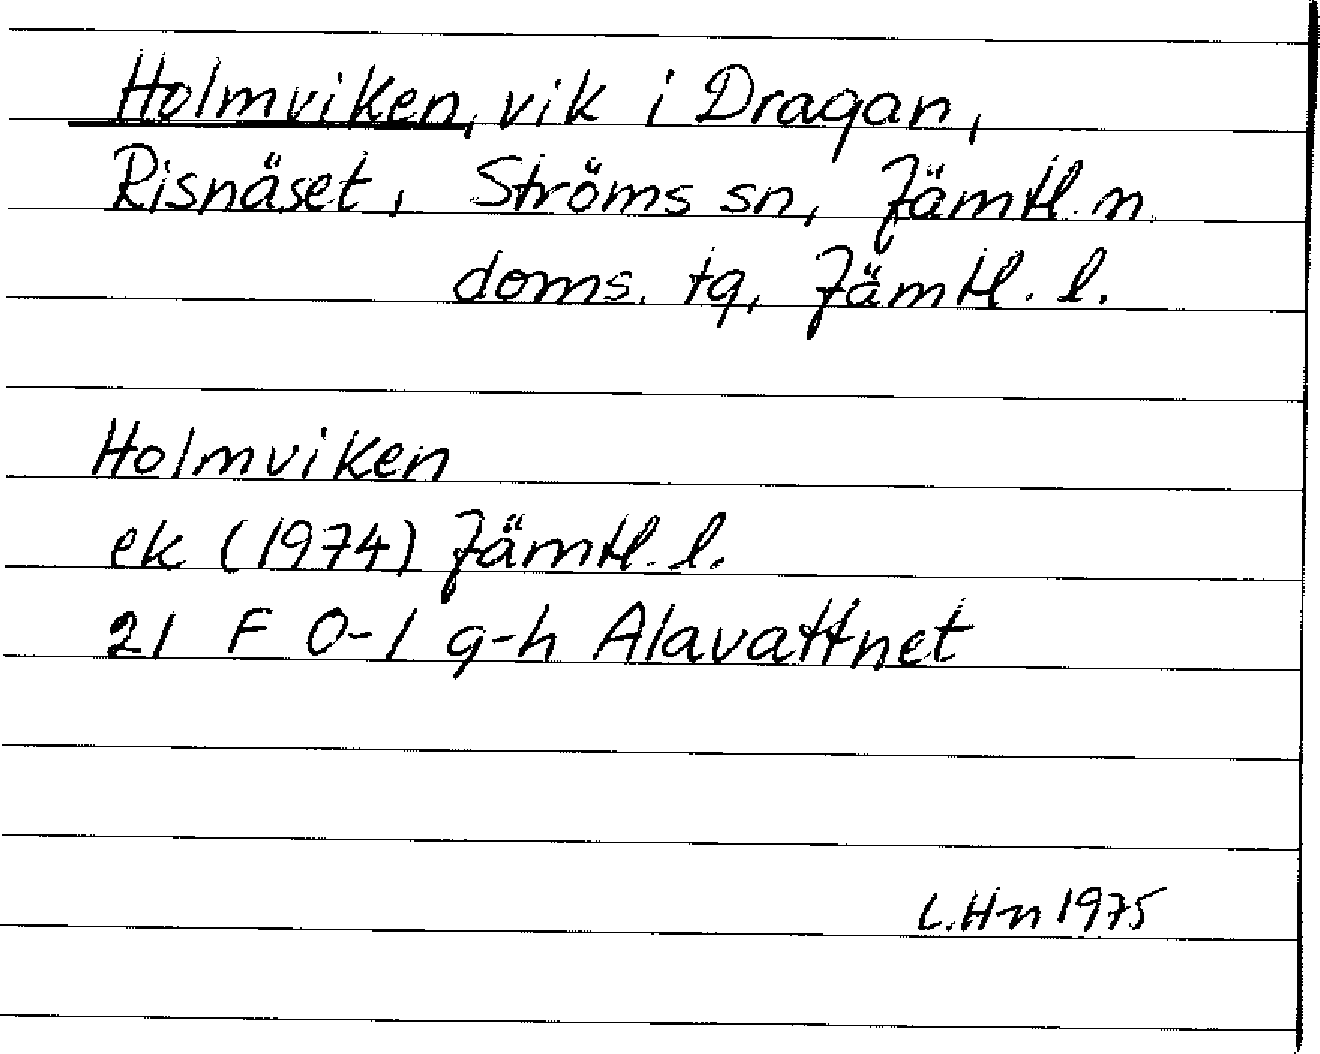 Holmviken, vik i Dragan,
Risnäset, Ströms sn, Jämtl. n.
doms. tg, Jämtl. l.
Holmviken
ek (1974) Jämtl. l.
21 F 0-1 g-h Alavattnet
L.Hn 1975